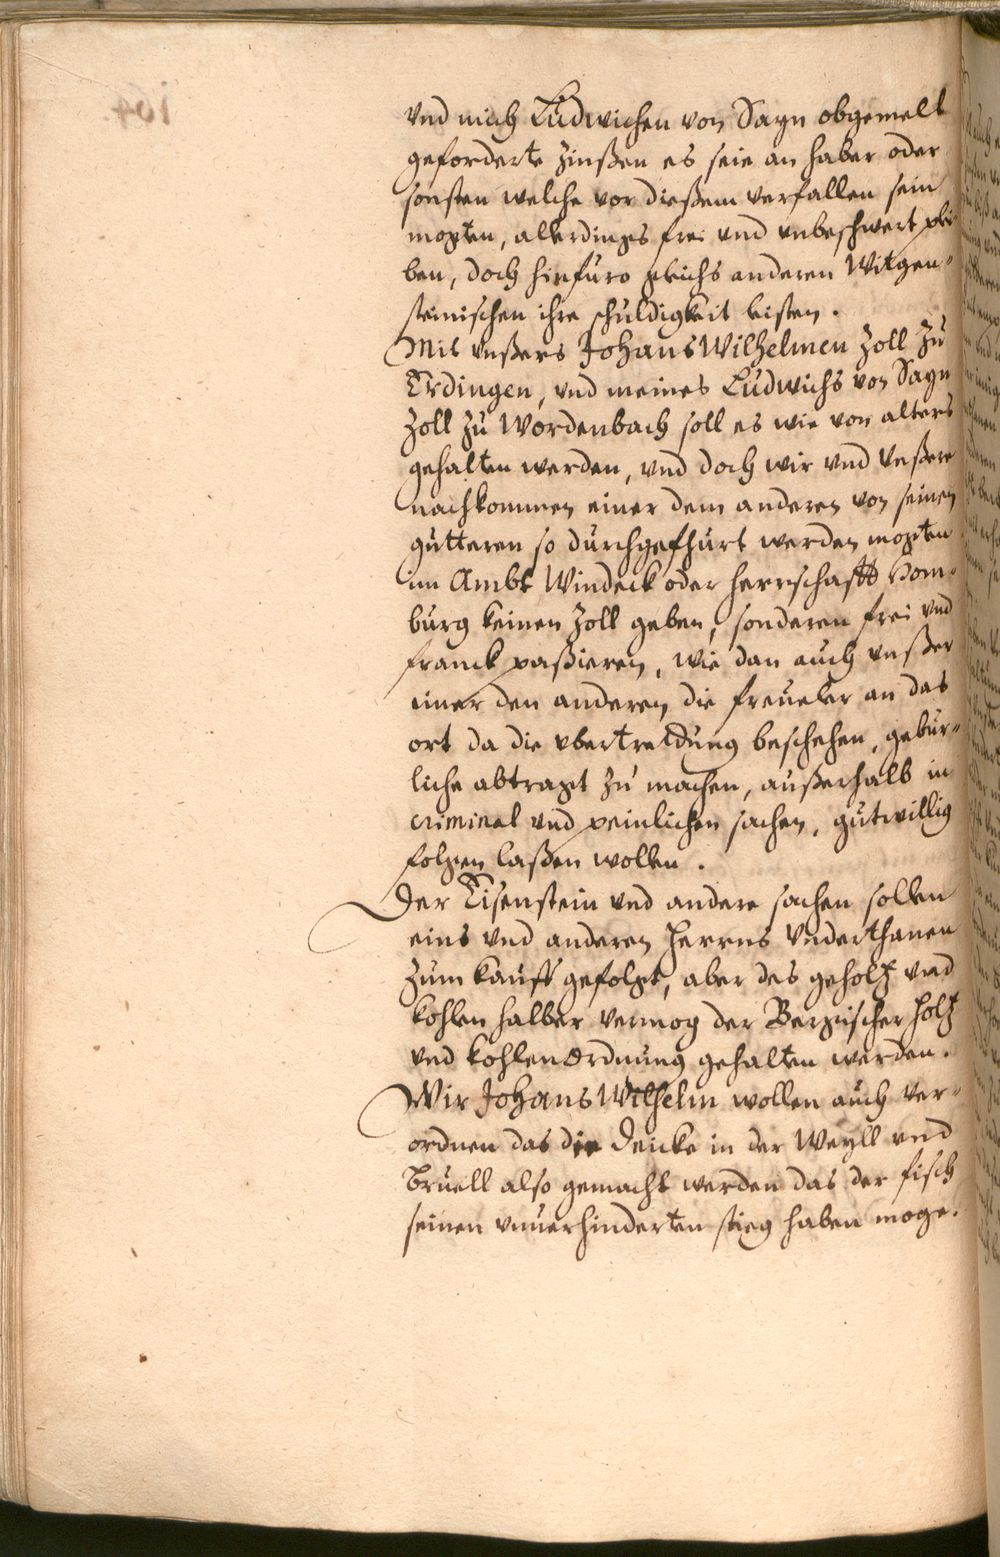 vnd mich Ludwichen von Sayn obgemelt
geforderte Zinßen es seie an haber oder
sonsten welche vor dießem verfallen sein
mogten, allerdings frei vnd vnbeschwert plei-
ben, doch hinfuro gleichs anderen Witgen-
steinischen ihre schuldigkeit leisten.
Mit vnßers Johans Wilhelmen Zoll zu
Erdingen, vnd meines Ludwichs von Sayn
Zoll zu Wordenbach soll es wie von alters
gehalten werden, vnd doch wir vnd vnßere
nachkommen einer dem anderen von seinen
gutteren so durchgefhurt werden mogten
im Ambt Windeck oder herrschafft Hom-
burg keinen Zoll geben, sonderen frei vnd
franck paßieren, wie dan auch vnßer
einer den anderen die freueler an das
ort da die vbertrettung beschehen, gebur-
liche abtragt zu machen, außerhalb in
criminal vnd peinlichen sachen, gutwillig
folgen laßen wollen.
Der Eisenstein vnd andere sachen sollen
eins vnd anderen Herrns Vnderthanen
zum kauff gefolgt, aber des geholtz vnd
kohlen halber vermog der Bergischer holtz
vnd kohlen Ordnung gehalten werden.
Wir Johans Wilhelm wollen auch ver-
ordnen das die Deicke in der Weyll vnd
Bruell also gemacht werden das der fisch
seinen vnuerhinderten stieg haben moge.